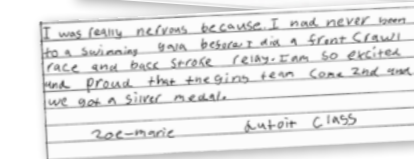 I was really nervous because. I had never been
to a swimming gala before. I did a front crawl
race and back stroke relay. I am so excited
and proud that the girls team came 2nd and
we got a silver medal.
zoe-marie dutoit class